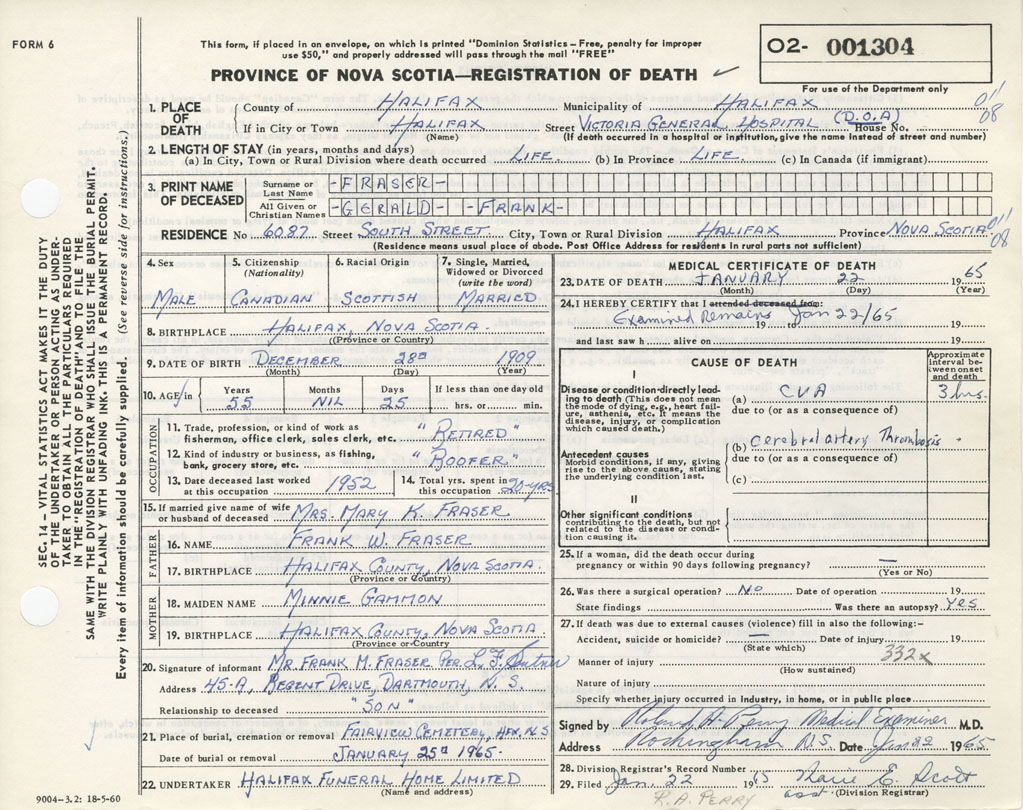 FORM 6
This form, if placed in an envelope, on which is printed "Dominion Statistics – Free, penalty for improper
use $50," and properly addressed will pass through the mail "FREE"
PROVINCE OF NOVA SCOTIA—REGISTRATION OF DEATH
O2- 001304
For use of the Department only
1. PLACE OF DEATH
County of HALIFAX Municipality of HALIFAX
If in City or Town HALIFAX Street VICTORIA GENERAL HOSPITAL (D.O.A) House No.
(Name) (If death occurred in a hospital or institution, give the name instead of street and number)
011
08
2. LENGTH OF STAY (in years, months and days)
(a) In City, Town or Rural Division where death occurred LIFE. (b) In Province LIFE. (c) In Canada (if immigrant)
3. PRINT NAME OF DECEASED
Surname or Last Name -FRASER-
All Given or Christian Names -GERALD- -FRANK-
RESIDENCE No 6087 Street SOUTH STREET City, Town or Rural Division HALIFAX Province NOVA SCOTIA
011
08
(Residence means usual place of abode. Post Office Address for residents in rural parts not sufficient)
4. Sex MALE
5. Citizenship (Nationality) CANADIAN
6. Racial Origin SCOTTISH
7. Single, Married, Widowed or Divorced (write the word) MARRIED
8. BIRTHPLACE HALIFAX, NOVA SCOTIA.
(Province or Country)
9. DATE OF BIRTH DECEMBER 28th 1909
(Month) (Day) (Year)
10. AGE in Years 55 Months NIL Days 25 If less than one day old hrs. or min.
OCCUPATION
11. Trade, profession, or kind of work as
fisherman, office clerk, sales clerk, etc. "RETIRED"
12. Kind of industry or business, as fishing,
bank, grocery store, etc. "ROOFER"
13. Date deceased last worked at this occupation 1952
14. Total yrs. spent in this occupation 20-YRS
15. If married give name of wife or husband of deceased MRS. MARY K. FRASER
FATHER
16. NAME FRANK W. FRASER
17. BIRTHPLACE HALIFAX COUNTY, NOVA SCOTIA.
(Province or Country)
MOTHER
18. MAIDEN NAME MINNIE GAMMON
19. BIRTHPLACE HALIFAX COUNTY, NOVA SCOTIA
(Province or Country)
20. Signature of informant MR. FRANK M. FRASER PER L. F.
Address 45-A, REGENT DRIVE, DARTMOUTH, N. S.
Relationship to deceased "SON"
21. Place of burial, cremation or removal FAIRVIEW CEMETERY, HFX. N S
Date of burial or removal JANUARY 25th 1965.
22. UNDERTAKER HALIFAX FUNERAL HOME LIMITED
(Name and address)
9004-3.2: 18-5-60
MEDICAL CERTIFICATE OF DEATH
23. DATE OF DEATH JANUARY 22 1965
(Month) (Day) (Year)
24. I HEREBY CERTIFY that I attended deceased from:
Examined Remains 19 to Jan 22/65 19
and last saw h alive on 19
CAUSE OF DEATH
Approximate interval between onset and death
I
Disease or condition directly leading to death (This does not mean the mode of dying, e.g., heart failure, asthenia, etc. It means the disease, injury, or complication which caused death.)
(a) CVA 3 hrs.
due to (or as a consequence of)
Antecedent causes
Morbid conditions, if any, giving rise to the above cause, stating the underlying condition last.
(b) Cerebral artery Thrombosis.
due to (or as a consequence of)
(c)
II
Other significant conditions
contributing to the death, but not related to the disease or condition causing it.
25. If a woman, did the death occur during
pregnancy or within 90 days following pregnancy? —
(Yes or No)
26. Was there a surgical operation? No Date of operation 19
State findings Was there an autopsy? Yes
27. If death was due to external causes (violence) fill in also the following:-
Accident, suicide or homicide? — Date of injury 19
(State which)
332x
Manner of injury
(How sustained)
Nature of injury
Specify whether injury occurred in industry, in home, or in public place
Signed by Roland A. Perry Medical Examiner M.D.
Address Rockingham N.S. Date Jan 22 1965
28. Division Registrar's Record Number
29. Filed Jan. 22 1965 Marie E. Scott
R. A. PERRY asst. (Division Registrar)
SEC. 14 – VITAL STATISTICS ACT MAKES IT THE DUTY
OF THE UNDERTAKER OR PERSON ACTING AS UNDER-
TAKER TO OBTAIN ALL THE PARTICULARS REQUIRED
IN THE "REGISTRATION OF DEATH" AND TO FILE THE
SAME WITH THE DIVISION REGISTRAR WHO SHALL ISSUE THE BURIAL PERMIT.
WRITE PLAINLY WITH UNFADING INK. THIS IS A PERMANENT RECORD.
Every item of information should be carefully supplied. (See reverse side for instructions.)